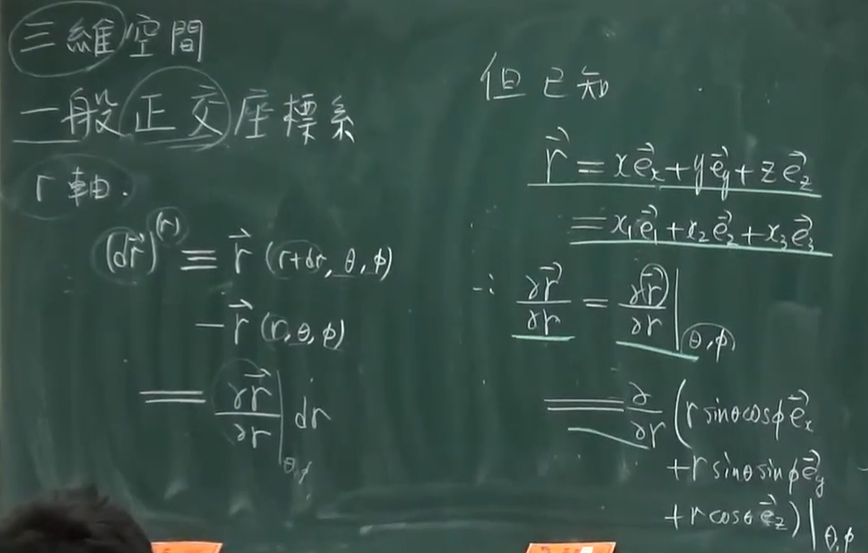 三維空間
一般正交座標系
r軸.
(d\vec{r})^{(r)} ≡ \vec{r} (r+dr, θ, ϕ)
- \vec{r} (r, θ, ϕ)
= \frac{∂\vec{r}}{∂r}|_{θ,ϕ} dr
但已知
\vec{r} = x\vec{e}_x + y\vec{e}_y + z\vec{e}_z
= x_1\vec{e}_1 + x_2\vec{e}_2 + x_3\vec{e}_3
∴ \frac{∂\vec{r}}{∂r} = \frac{∂(\vec{r})}{∂r}|_{θ,ϕ}
= \frac{∂}{∂r} (r sinθcosϕ\vec{e}_x
+ r sinθ sinϕ\vec{e}_y
+ r cosθ \vec{e}_z)|_{θ,ϕ}